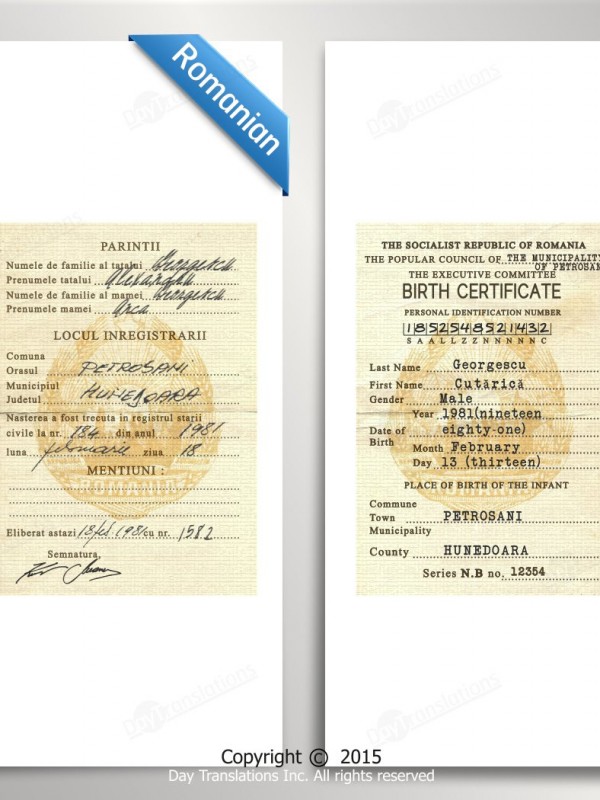 Romanian
PARINTII
Numele de familie al tatalui Georgescu
Prenumele tatalui Alexandru
Numele de familie al mamei Georgescu
Prenumele mamei Anca
LOCUL INREGISTRARII
Comuna
Orasul PETROSANI
Municipiul
Judetul HUNEDOARA
Nasterea a fost trecuta in registrul starii
civile la nr. 184 din anul 1981
luna februarie ziua 18
MENTIUNI :
ROMANIA
Eliberat astazi 18 feb. 1981 cu nr. 1582
Semnatura,
THE SOCIALIST REPUBLIC OF ROMANIA
THE POPULAR COUNCIL OF THE MUNICIPALITY
OF PETROSAN
THE EXECUTIVE COMMITTEE
BIRTH CERTIFICATE
PERSONAL IDENTIFICATION NUMBER
1852548521432
SAALLZZNNNNNC
Last Name Georgescu
First Name Cutărică
Gender Male
Year 1981(nineteen
Date of eighty-one)
Birth
Month February
Day 13 (thirteen)
PLACE OF BIRTH OF THE INFANT
Commune
Town PETROSANI
Municipality
County HUNEDOARA
Series N.B no. 12354
DayTranslations
DayTranslations
Copyright © 2015
Day Translations Inc. All rights reserved